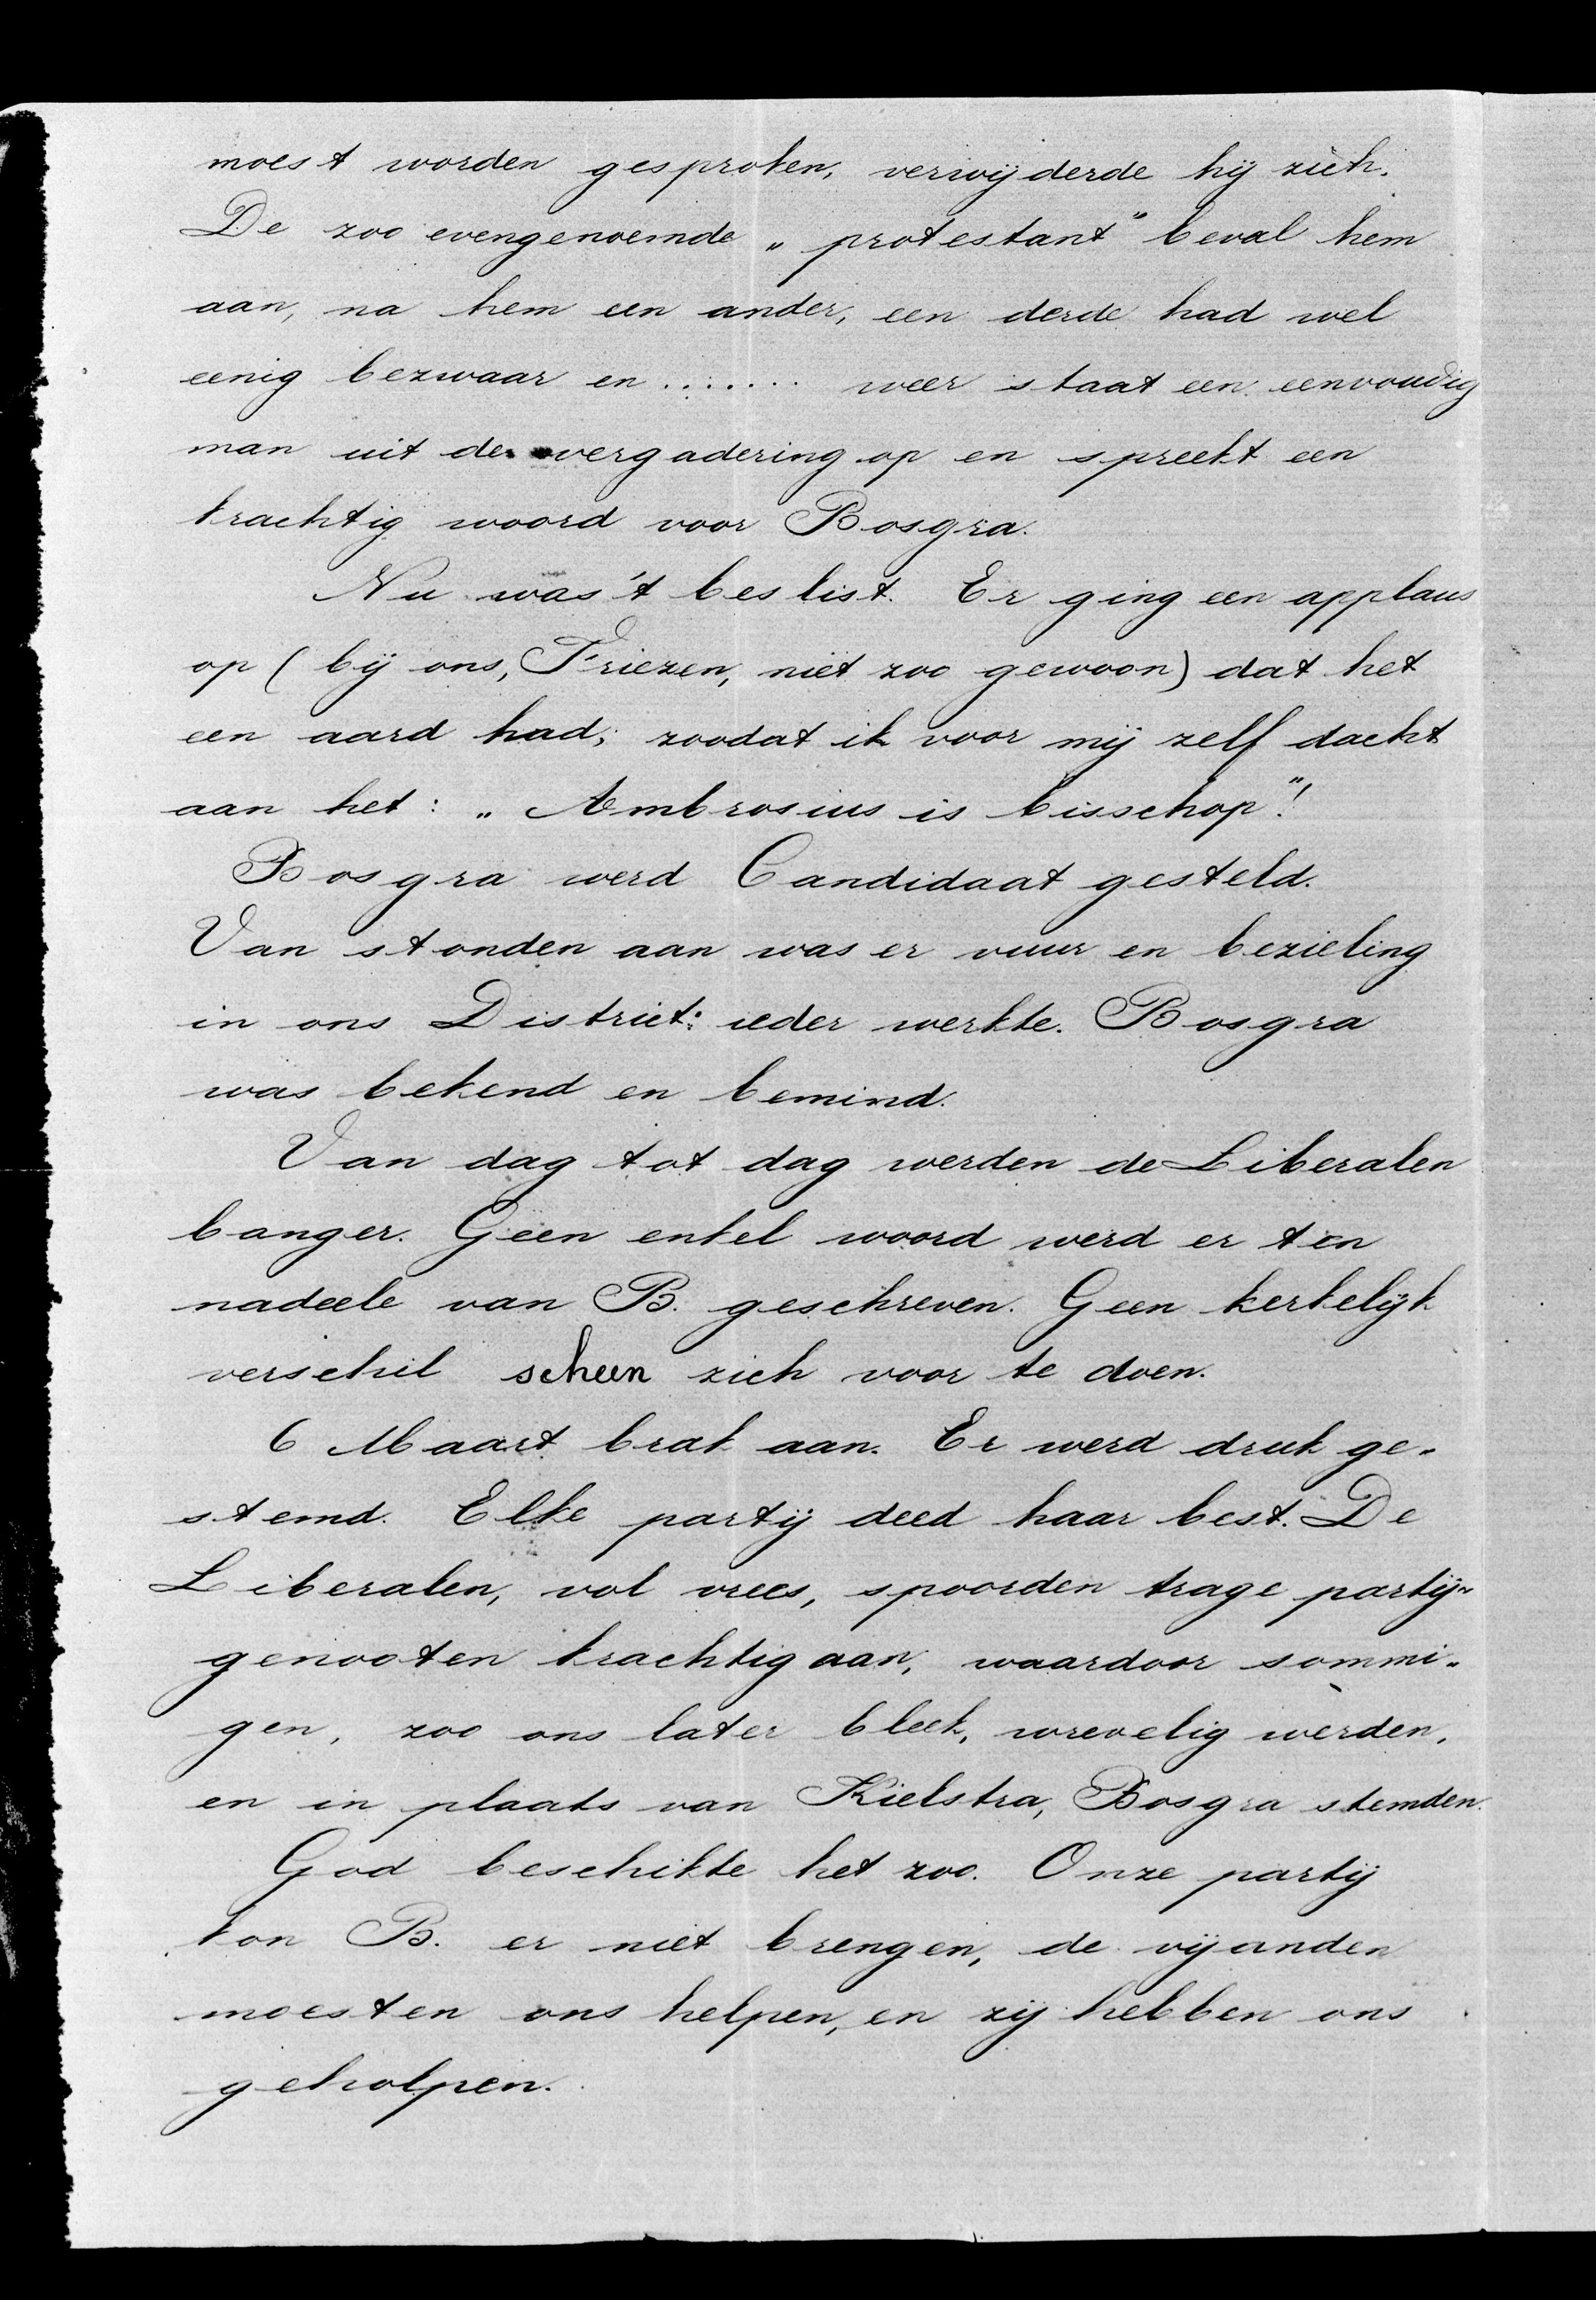 moest worden gesproken, verwijderde hij zich.
De zoo evengenoemde „protestant” beval hem
aan, na hem een ander, een derde had wel
eenig bezwaar en ....... weer staat een eenvoudig
man uit de vergadering op en spreekt een
krachtig woord voor Bosgra.
Nu was 't beslist. Er ging een applaus
op (bij ons, Friezen, niet zoo gewoon) dat het
een aard had; zoodat ik voor mij zelf dacht
aan het: „Ambrosius is bisschop”!
Bosgra werd Candidaat gesteld.
Van stonden aan was er vuur en bezieling
in ons District: ieder werkte. Bosgra
was bekend en bemind.
Van dag tot dag werden de Liberalen
banger. Geen enkel woord werd er ten
nadeele van B. geschreven. Geen kerkelijk
verschil scheen zich voor te doen.
6 Maart brak aan. Er werd druk ge-
stemd. Elke partij deed haar best. De
Liberalen, vol vrees, spoorden trage partij-
genooten krachtig aan, waardoor sommi-
gen, zoo ons later bleek, wrevelig werden,
en in plaats van Kielstra, Bosgra stemden.
God beschikte het zoo. Onze partij
kon B. er niet brengen, de vijanden
moesten ons helpen, en zij hebben ons
geholpen.